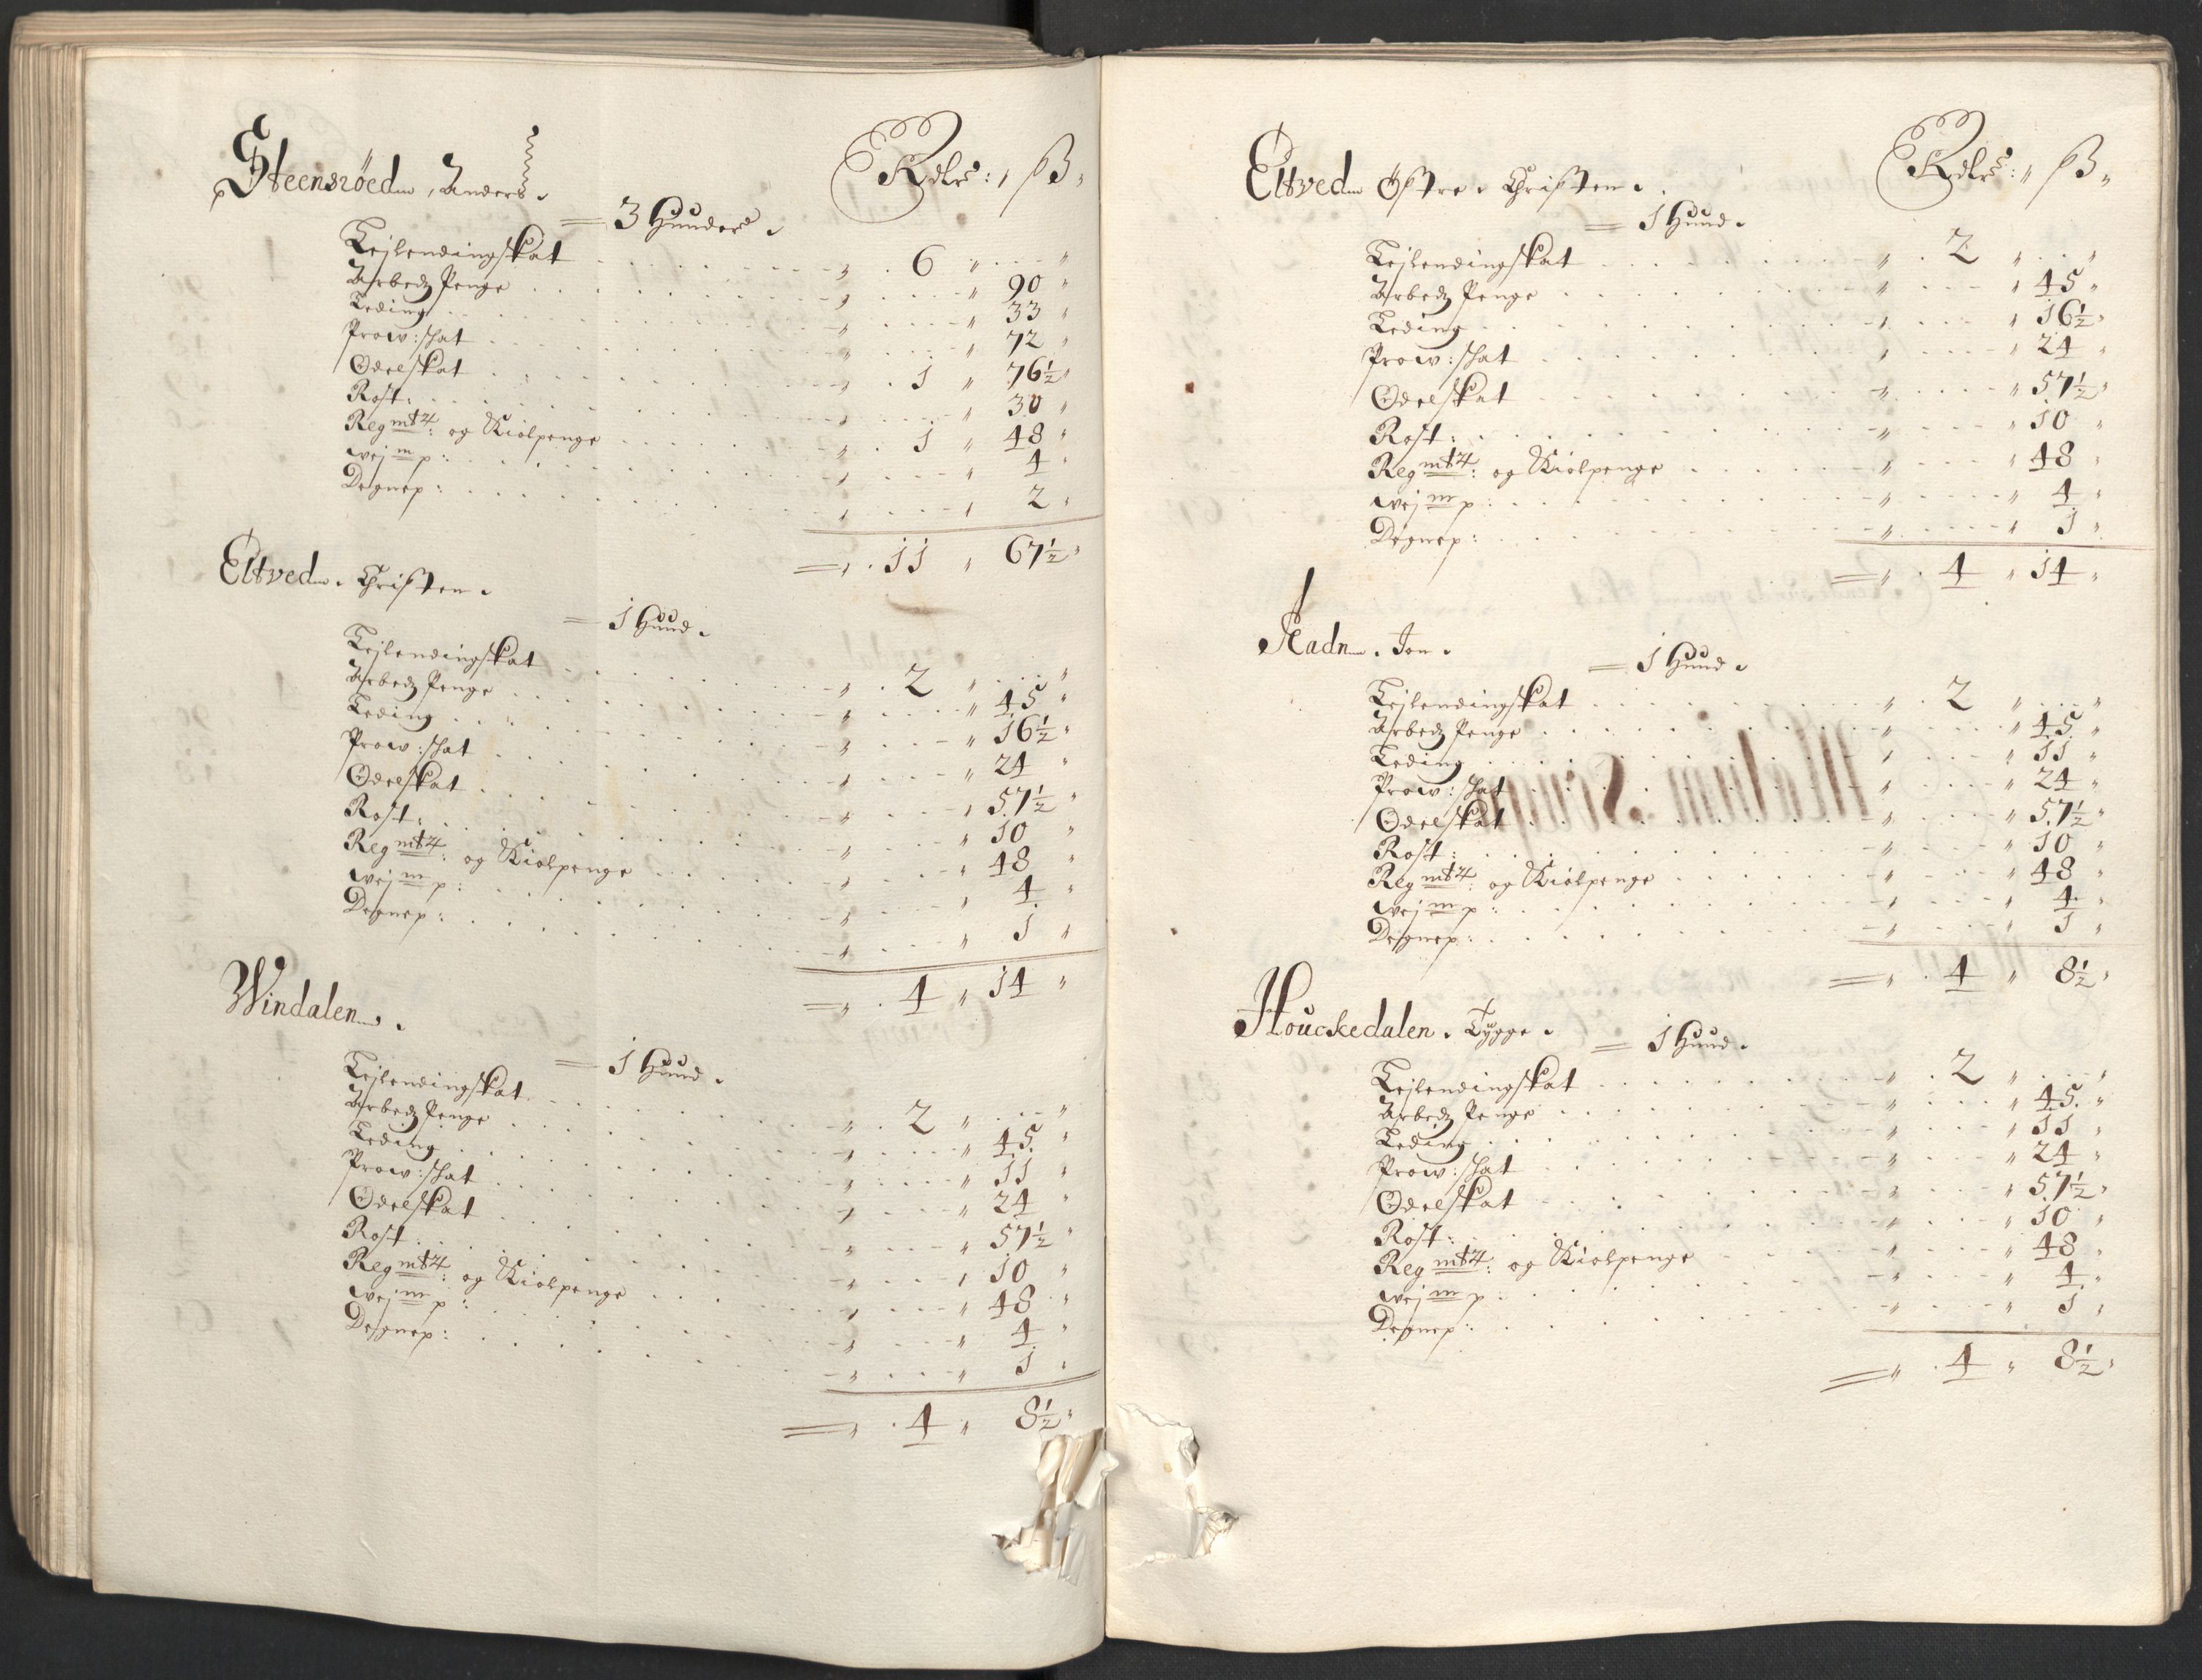 Steensröed, Anders. Rdlr: ß
3 Huuder.
Lejlendingskat 6
Arbedz Penge 90
Leding 33
Prow:shat 72
Odelskat 1 76½
Rost: 30
Regmtz: og Kiolpenge 1 48
wejmp: 4
Degnep: 2
11 67½
Eltved. Christen.
1 Huud.
Lejlendingskat 2
Arbedz Penge 45
Leding 16½
Prow:shat 24
Odelskat 57½
Rost: 10
Regmtz: og Kiolpenge 48
wejmp: 4
Degnep: 1
4 14
Windalen.
1 Huud.
Lejlendingskat 2
Arbedz Penge 45
Leding 11
Prow:shat 24
Odelskat 57½
Rost: 10
Regmtz: og Kiolpenge 48
wejmp: 4
Degnep: 1
4 8½
Eltved Östre. Christen. Rdlr: ß
1 Huud.
Lejlendingskat 2
Arbedz Penge 45
Leding 16½
Prow:shat 24
Odelskat 57½
Rost: 10
Regmtz: og Kiolpenge 48
wejmp: 4
Degnep: 1
4 14
Aadn. Jon.
1 Huud.
Lejlendingskat 2
Arbedz Penge 45
Leding 11
Prow:shat 24
Odelskat 57½
Rost: 10
Regmtz: og Kiolpenge 48
wejmp: 4
Degnep: 1
4 8½
Houckedalen. Tygge.
1 Huud.
Lejlendingskat 2
Arbedz Penge 45
Leding 11
Prow:shat 24
Odelskat 57½
Rost: 10
Regmtz: og Kiolpenge 48
wejmp: 4
Degnep: 1
4 8½